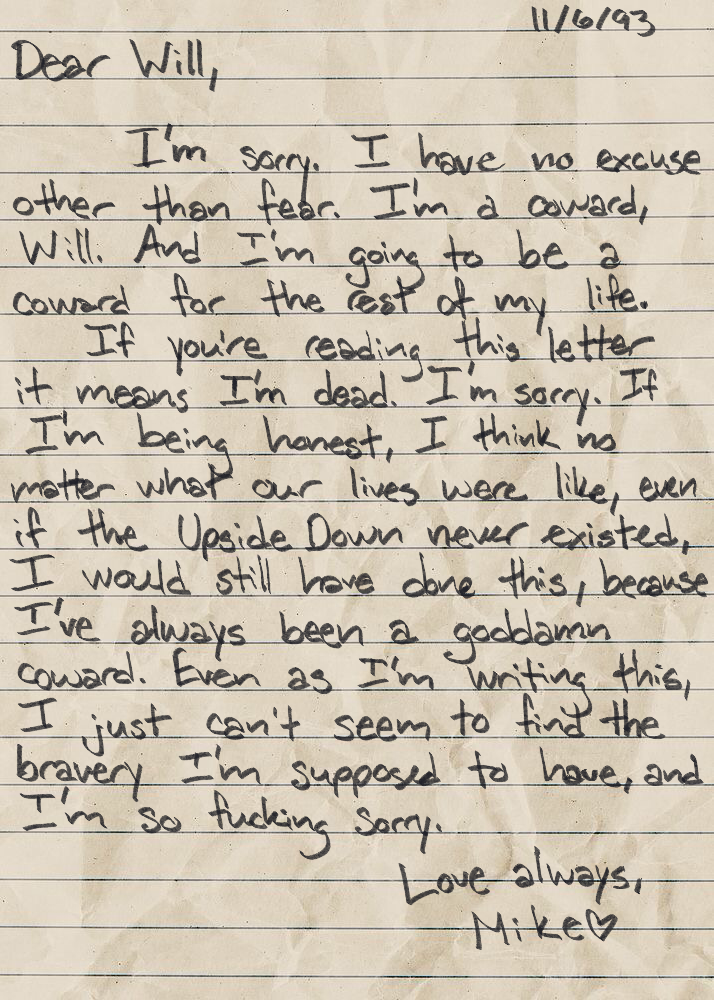 11/6/93
Dear Will,
I'm sorry. I have no excuse
other than fear. I'm a coward,
Will. And I'm going to be a
coward for the rest of my life.
If you're reading this letter
it means I'm dead. I'm sorry. If
I'm being honest, I think no
matter what our lives were like, even
if the Upside Down never existed,
I would still have done this, because
I've always been a goddamn
coward. Even as I'm writing this,
I just can't seem to find the
bravery I'm supposed to have, and
I'm so fucking sorry.
Love always,
Mike♡